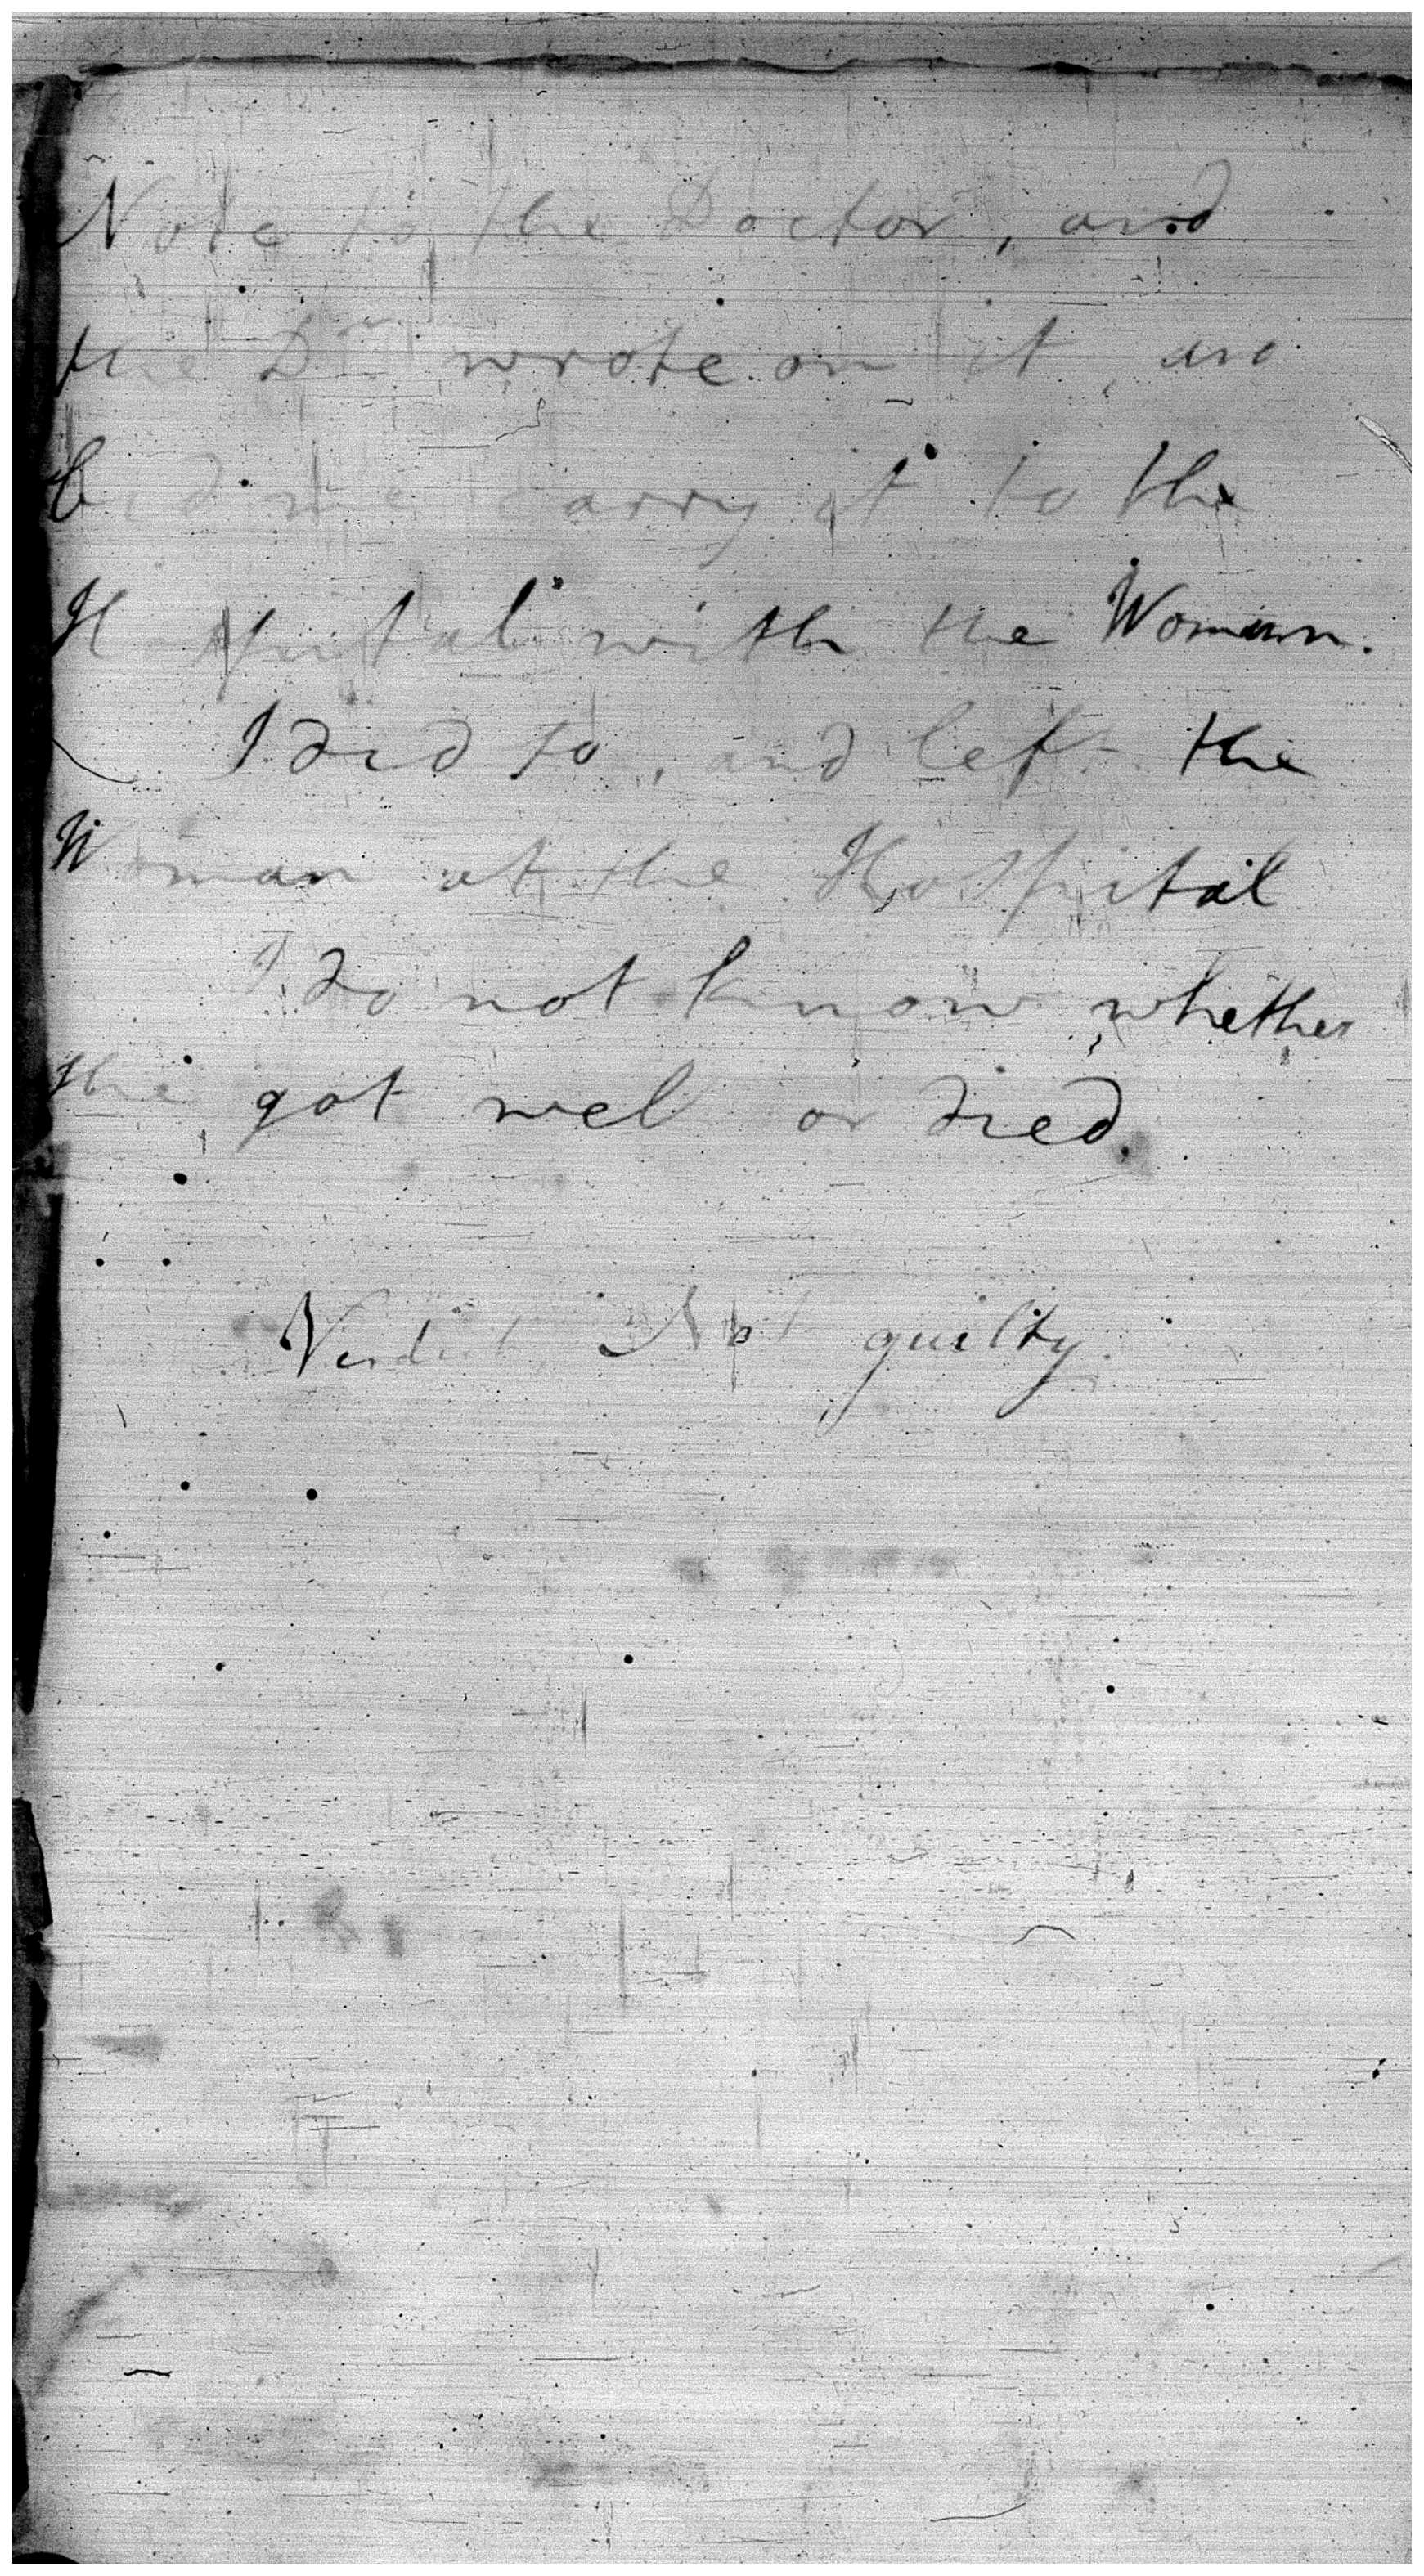 Note to the Doctor, and
the Dr. wrote on it, and
bid me carry it to the
Hospital with the Woman.
I did so, and left the
Woman at the Hospital
I do not know whether
she got well or died.
Verdict, Not guilty.